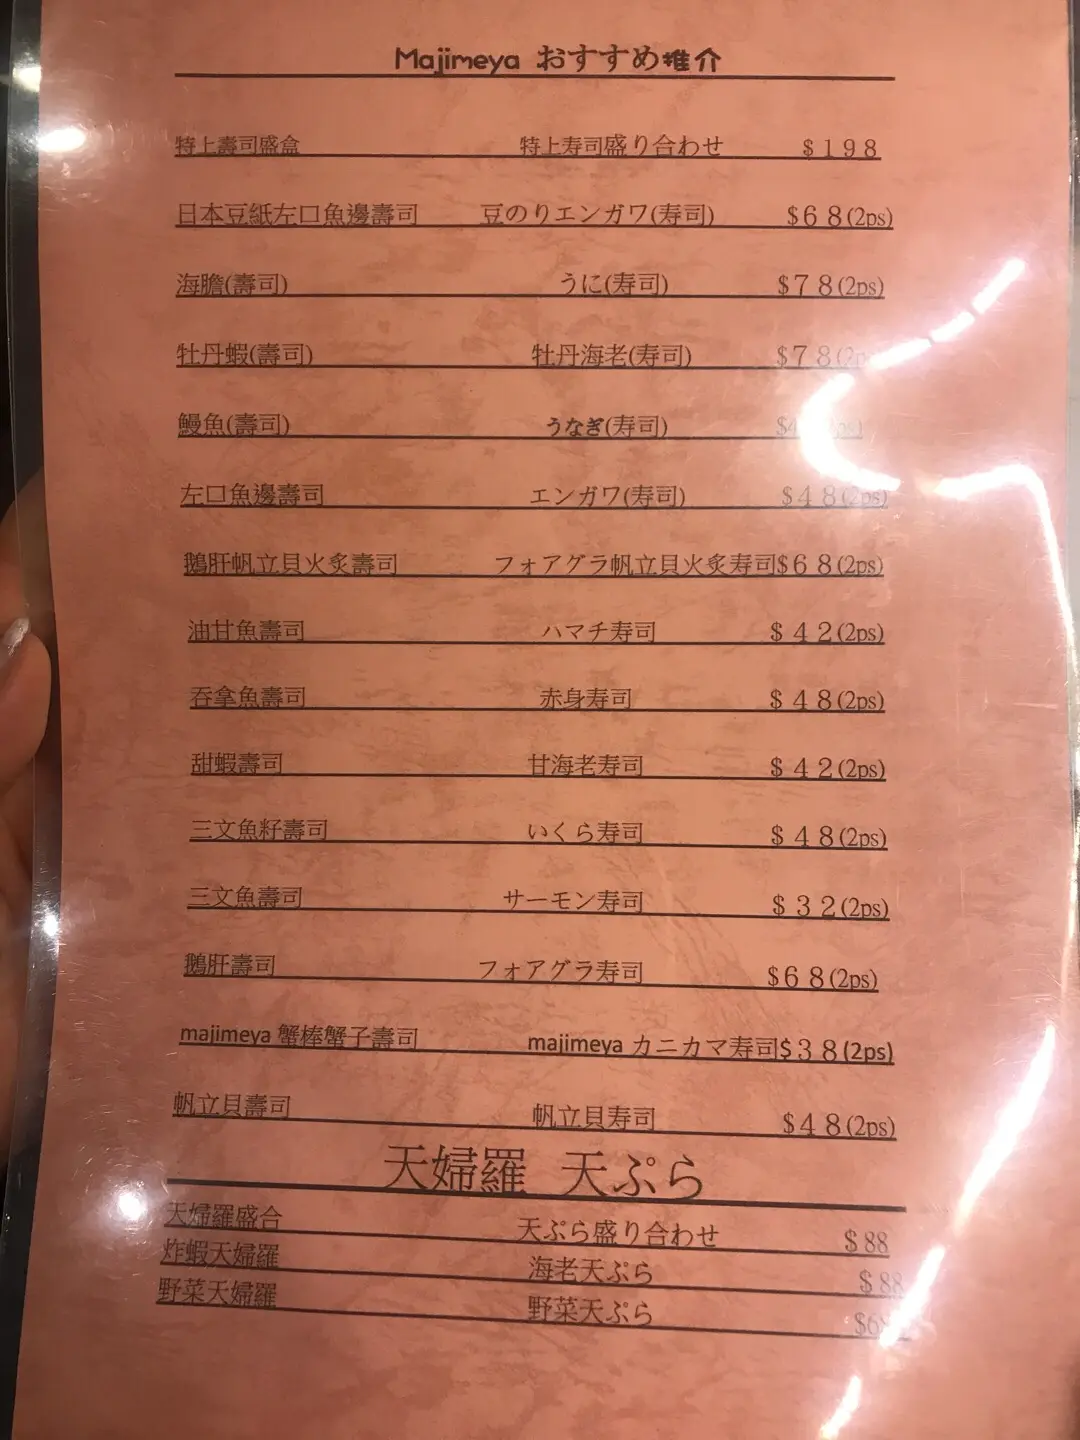 Majimeya おすすめ推介
特上壽司盛盒 特上寿司盛り合わせ $198
日本豆紙左口魚邊壽司 豆のりエンガワ(寿司) $68(2ps)
海膽(壽司) うに(寿司) $78(2ps)
牡丹蝦(壽司) 牡丹海老(寿司) $78(2ps)
鰻魚(壽司) うなぎ(寿司)
左口魚邊壽司 エンガワ(寿司) $48(2ps)
鵝肝帆立貝火炙壽司 フォアグラ帆立貝火炙寿司$68(2ps)
油甘魚壽司 ハマチ寿司 $42(2ps)
吞拿魚壽司 赤身寿司 $48(2ps)
甜蝦壽司 甘海老寿司 $42(2ps)
三文魚籽壽司 いくら寿司 $48(2ps)
三文魚壽司 サーモン寿司 $32(2ps)
鵝肝壽司 フォアグラ寿司 $68(2ps)
majimeya 蟹棒蟹子壽司 majimeya カニカマ寿司$38(2ps)
帆立貝壽司 帆立貝寿司 $48(2ps)
天婦羅 天ぷら
天婦羅盛合 天ぷら盛り合わせ $88
炸蝦天婦羅 海老天ぷら $88
野菜天婦羅 野菜天ぷら